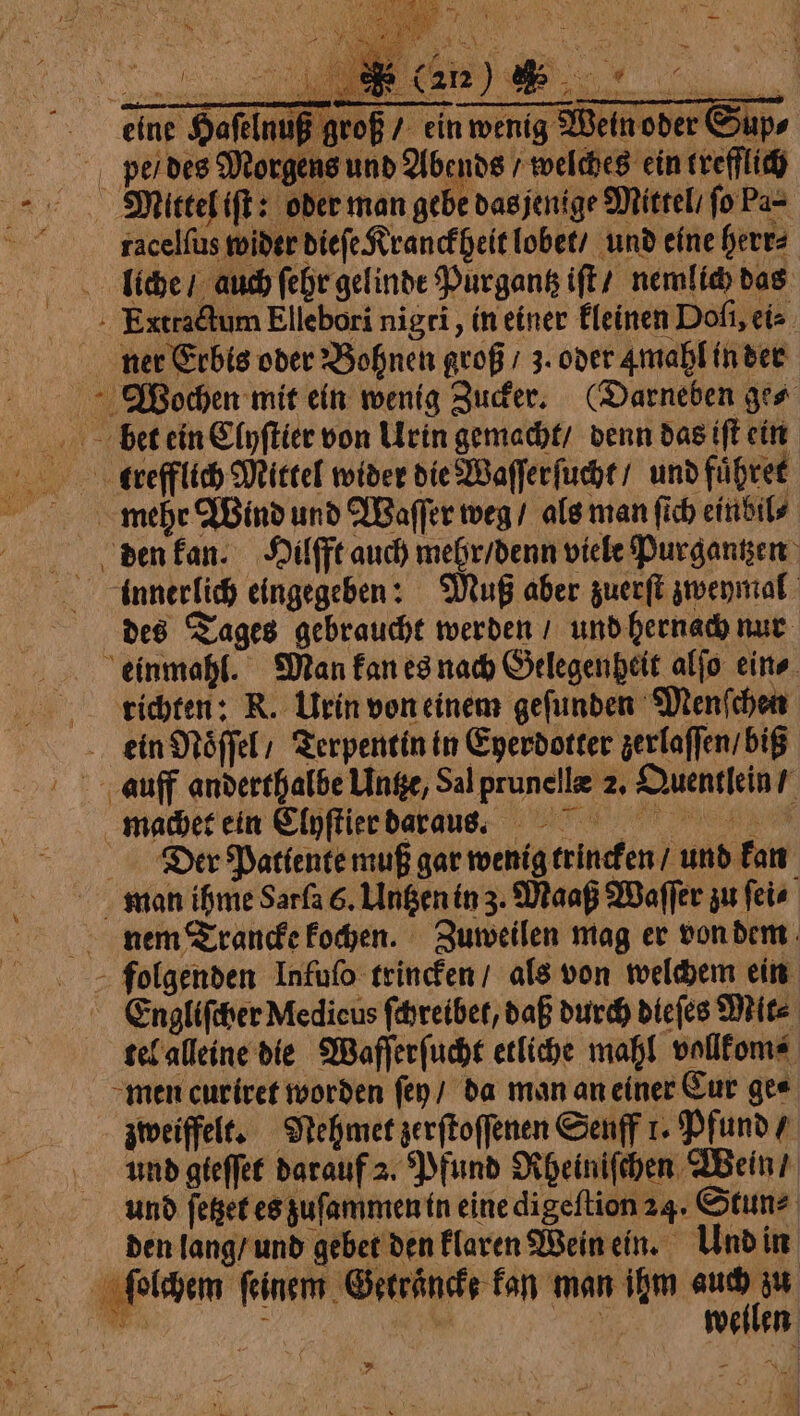 (212)
eine Haſelnuß groß / ein wenig Wein oder Sup⸗
pe / des Morgens und Abends / welches ein trefflich
Mittel iſt: oder man gebe dasjenige Mittel / ſo Pa-
racelſus wider dieſe Kranckheit lobet / und eine herr⸗
liche / auch ſehr gelinde Purgantz iſt / nemlich das
Extractum Ellebori nigri, in einer kleinen Doſi, ei⸗
ner Erbis oder Bohnen groß / 3. oder 4mahl in der
Wochen mit ein wenig Zucker. (Darneben ge⸗
bet ein Clyſtier von Urin gemacht / denn das iſt ein
trefflich Mittel wider die Waſſerſucht / und fuͤhret
mehr Wind und Waſſer weg / als man ſich einbil⸗
den kan. Hilfft auch mehr / denn viele Purgantzen
innerlich eingegeben: Muß aber zuerſt zweymal
des Tages gebraucht werden / und hernach nur
einmahl. Man kan es nach Gelegenheit alſo ein⸗
richten: R. Urin von einem geſunden Menſchen
ein Noͤſſel / Terpentin in Eyerdotter zerlaſſen / biß
auff anderthalbe Untze, Sal prunellæ 2. Quentlein /
machet ein Clyſtier daraus.
Der Patiente muß gar wenig trincken / und kan
man ihme Sarſa 6. Untzen in 3. Maaß Waſſer zu ſei⸗
nem Trancke kochen. Zuweilen mag er von dem
folgenden Infuſo trincken / als von welchem ein
Engliſcher Medicus ſchreibet, daß durch dieſes Mit⸗
tel alleine die Waſſerſucht etliche mahl vollkom⸗
men curiret worden ſey / da man an einer Cur ge⸗
zweiffelt. Nehmet zerſtoſſenen Senff 1. Pfund /
und gieſſet darauf 2. Pfund Rheiniſchen Wein /
und ſetzet es zuſammen in eine digeſtion 24. Stun⸗
den lang / und gebet den klaren Wein ein. Und in
ſolchem ſeinem Getraͤncke kan man ihm auch zu
weilen